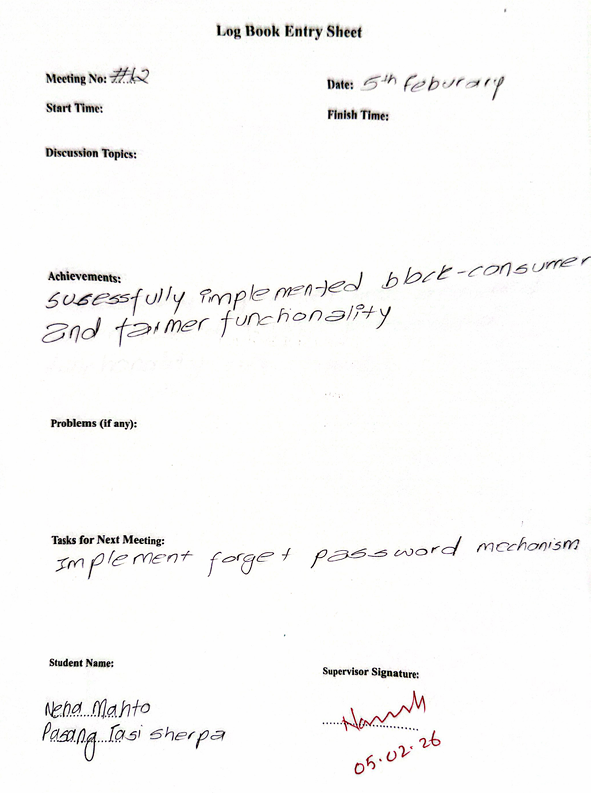 Log Book Entry Sheet
Meeting No: #12
Date: 5th Feburary
Start Time:
Finish Time:
Discussion Topics:
Achievements:
susessfully implemented block-consumer
and farmer functionality
Problems (if any):
Tasks for Next Meeting:
Implement forget password mechanism
Student Name:
Supervisor Signature:
Neha Mahto
Pasang Tasi Sherpa
05.02.26